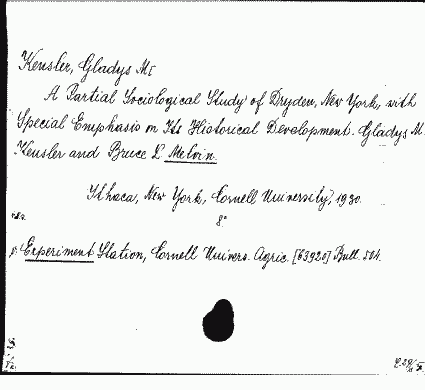 Kensler, Gladys M.
A Partial Sociological Study of Dryden, New York, with
Special Emphasis on Its Historical Development. Gladys M.
Kensler and Bruce L. Melvin.
Ithaca, New York, Cornell University, 1930.
8°
Experiment Station, Cornell Univers. Agric. [63920] Bull. 504.